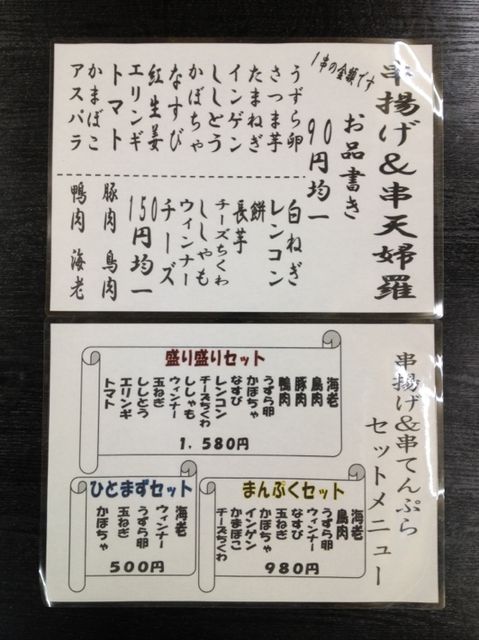 串揚げ&串天婦羅
お品書き
1串の金額です
90円均一
うずら卵
さつま芋
たまねぎ
インゲン
ししとう
かぼちゃ
なすび
紅生姜
エリンギ
トマト
かまぼこ
アスパラ
白ねぎ
レンコン
餅
長芋
チーズちくわ
ししゃも
ウィンナー
チーズ
150円均一
豚肉 鳥肉
鴨肉 海老
串揚げ&串てんぷら
セットメニュー
盛り盛りセット
海老
鳥肉
豚肉
鴨肉
うずら卵
かぼちゃ
なすび
レンコン
チーズちくわ
ししゃも
ウィンナー
玉ねぎ
ししとう
エリンギ
トマト
1.580円
まんぷくセット
海老
鳥肉
うずら卵
ウィンナー
なすび
玉ねぎ
かぼちゃ
インゲン
かまぼこ
チーズちくわ
980円
ひとまずセット
海老
ウィンナー
うずら卵
玉ねぎ
かぼちゃ
500円